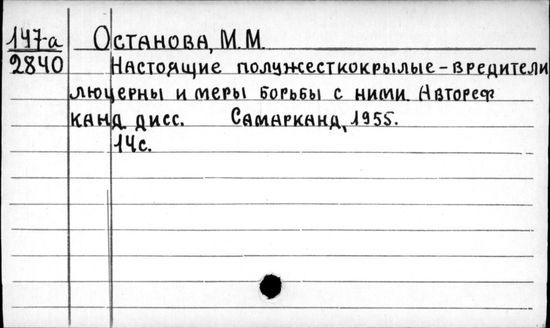 147-а
2840
Останова, М.М.
Настоящие полужесткокрылые-вредители
люцерны и меры борьбы с ними. Автореф
канд. дисс. Самарканд, 1955.
14с.